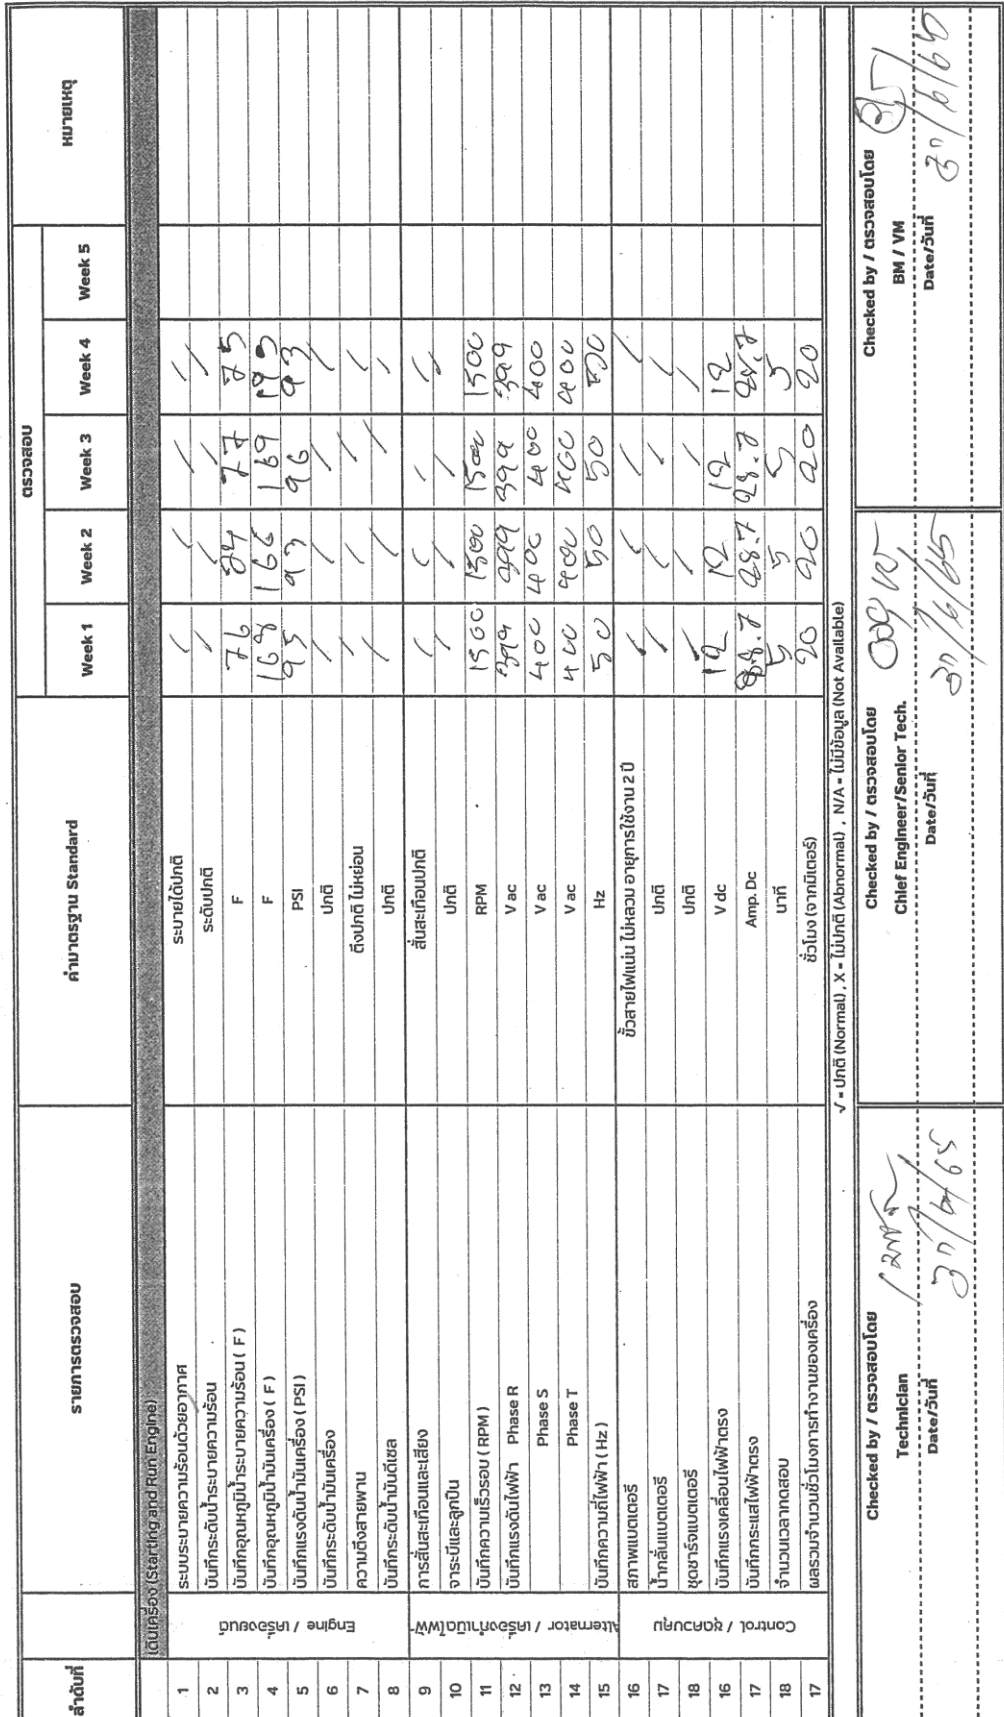 ลำดับที่ รายการตรวจสอบ ค่ามาตรฐาน Standard ตรวจสอบ หมายเหตุ
Week 1 Week 2 Week 3 Week 4 Week 5
เดินเครื่อง (Starting and Run Engine)
Engine / เครื่องยนต์
1 ระบบระบายความร้อนด้วยอากาศ ระบายได้ปกติ / / / /
2 บันทึกระดับน้ำระบายความร้อน ระดับปกติ / / / /
3 บันทึกอุณหภูมิน้ำระบายความร้อน ( F ) F 76 74 77 75
4 บันทึกอุณหภูมิน้ำมันเครื่อง ( F ) F 168 166 169
5 บันทึกแรงดันน้ำมันเครื่อง ( PSI ) PSI 95 93 96 93
6 บันทึกระดับน้ำมันเครื่อง ปกติ / / / /
7 ความตึงสายพาน ตึงปกติ ไม่หย่อน / / / /
8 บันทึกระดับน้ำมันดีเซล ปกติ / / / /
Alternator / เครื่องกำเนิดไฟฟ้า
9 การสั่นสะเทือนและเสียง สั่นสะเทือนปกติ / / / /
10 จาระบีและลูกปืน ปกติ / / / /
11 บันทึกความเร็วรอบ ( RPM ) RPM 1500 1500 1500 1500
12 บันทึกแรงดันไฟฟ้า Phase R V ac 399 399 399 399
13 Phase S V ac 400 400 400 400
14 Phase T V ac 400 400 400 400
15 บันทึกความถี่ไฟฟ้า ( Hz ) Hz 50 50 50 500
Control / ชุดควบคุม
16 สภาพแบตเตอรี่ ขั้วสายไฟแน่น ไม่หลวม อายุการใช้งาน 2 ปี / / / /
17 น้ำกลั่นแบตเตอรี่ ปกติ / / / /
18 ชุดชาร์จแบตเตอรี่ ปกติ / / / /
16 บันทึกแรงเคลื่อนไฟฟ้าตรง V dc 12 12 12 12
17 บันทึกกระแสไฟฟ้าตรง Amp. Dc 28.7 28.7 28.7 28.7
18 จำนวนเวลาทดสอบ นาที 5 5 5 5
17 ผลรวมจำนวนชั่วโมงการทำงานของเครื่อง ชั่วโมง (จากมิเตอร์) 20 20 20 20
√ = ปกติ (Normal) , X = ไม่ปกติ (Abnormal) , N/A = ไม่มีข้อมูล (Not Available)
Checked by / ตรวจสอบโดย
Technician
Date/วันที่ 30/6/65
Checked by / ตรวจสอบโดย
Chief Engineer/Senior Tech.
Date/วันที่ 30/6/65
Checked by / ตรวจสอบโดย
BM / VM
Date/วันที่ 30/6/65